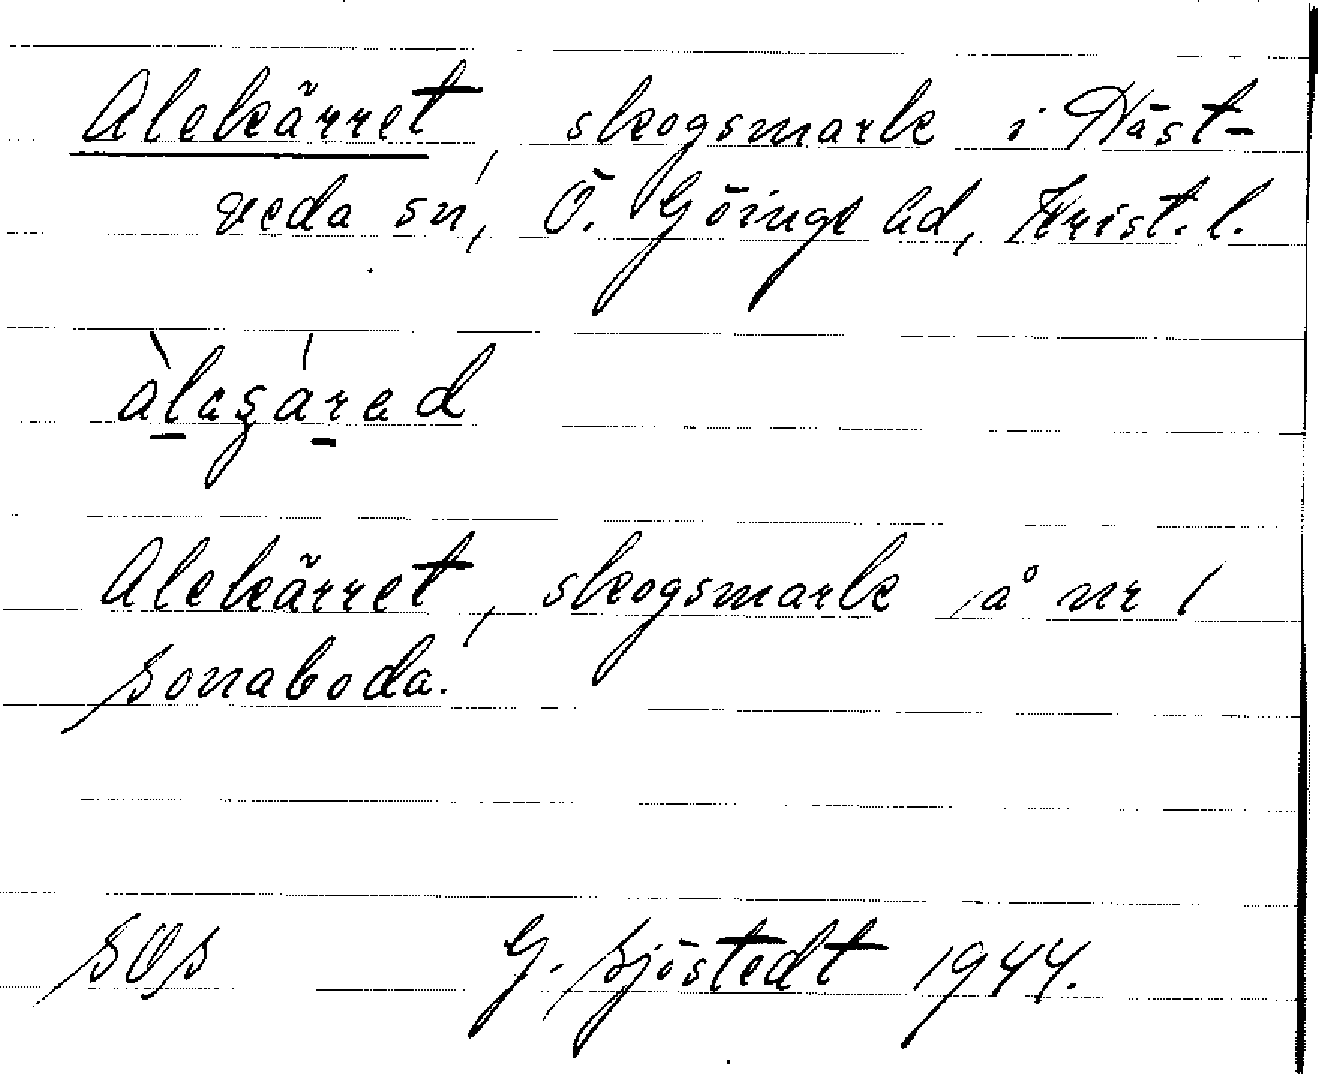 Alekärret, skogsmark i Häst-
veda sn, Ö. Göinge hd, Krist. l.
Alekärret, skogsmark å nr 1
Sonaboda.
SOS G. Sjöstedt 1944.